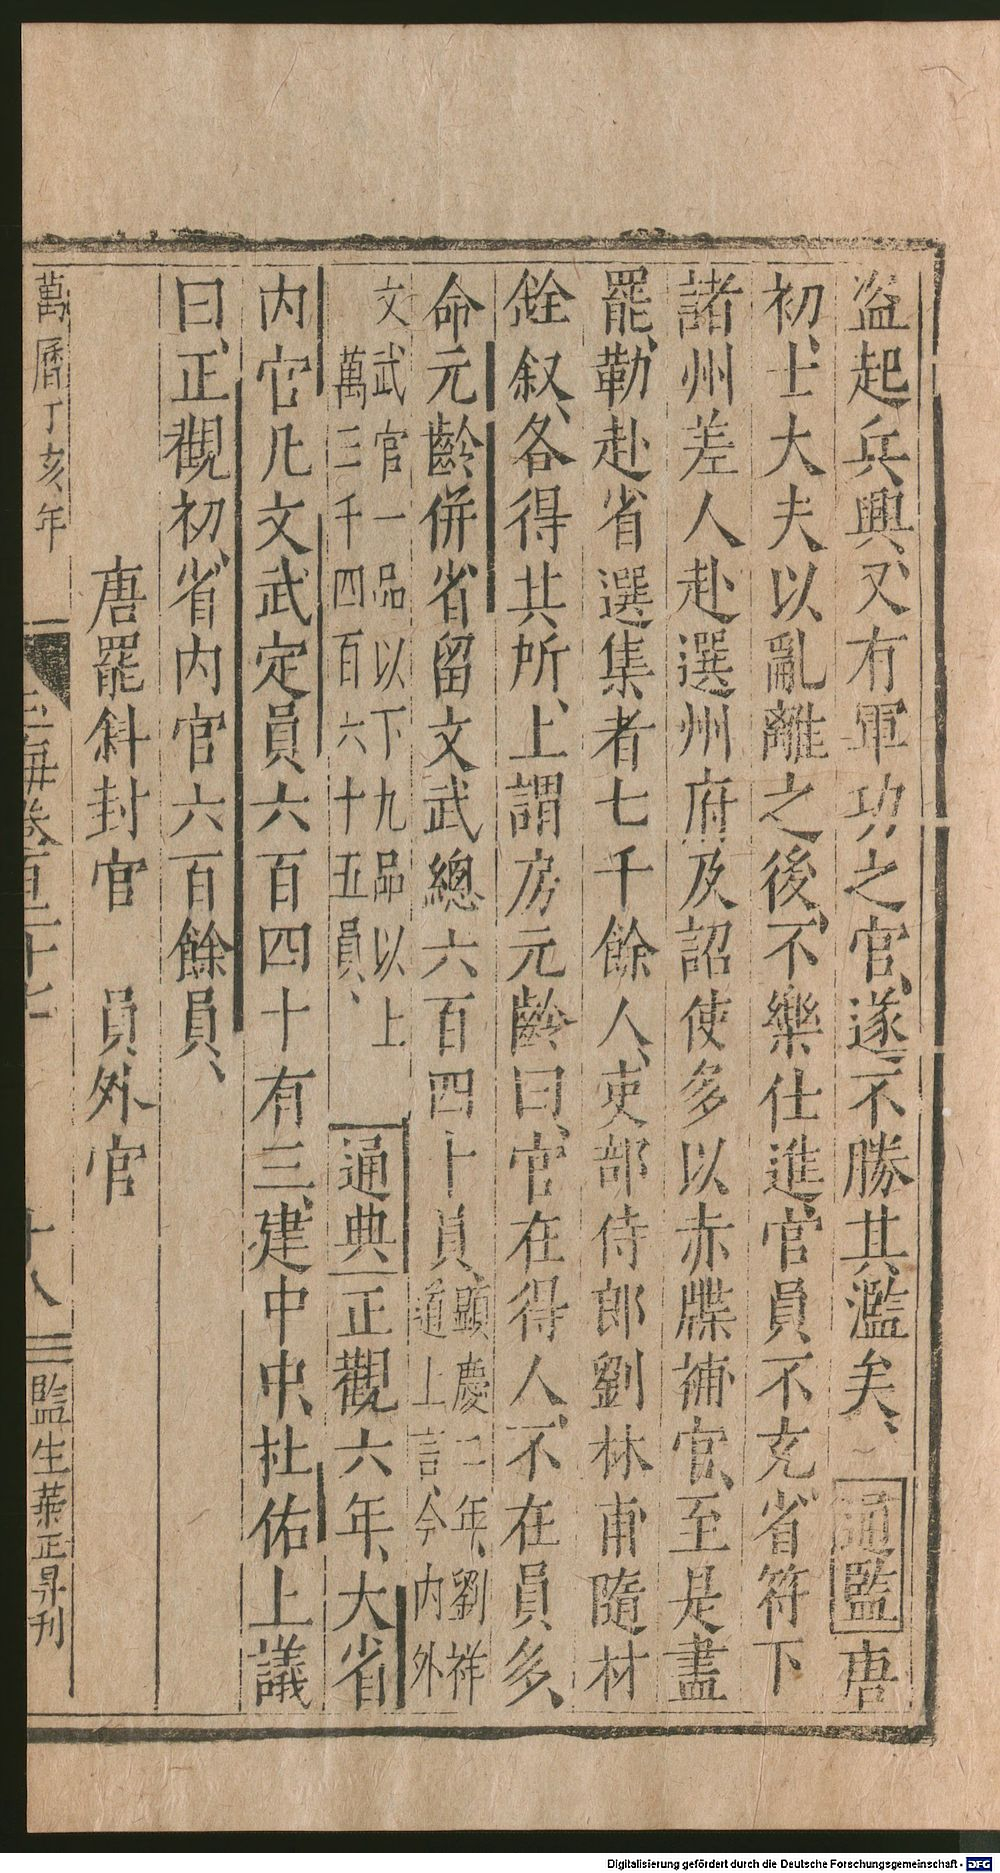 盜起兵興、又有軍功之官、遂不勝其濫矣、通監唐
初、士大夫以亂離之後、不樂仕進、官員不充、省符下
諸州差人赴選、州府及詔使多以赤牒補官、至是盡
罷、勒赴省選集者七千餘人、吏部侍郎劉林甫隨材
銓叙、各得其所、上謂房元齡曰、官在得人、不在員多、
命元齡併省、留文武總六百四十員、顯慶二年、劉祥
道上言、今内外
文武官一品以下九品以上
萬三千四百六十五員、通典正觀六年、大省
内官凡文武定員六百四十有三、建中中、杜佑上議
曰、正觀初、省内官六百餘員、
唐罷斜封官 員外官
萬曆丁亥年 玉海卷百二十七 十八 監生葉正昇刊
Digitalisierung gefördert durch die Deutsche Forschungsgemeinschaft - DFG